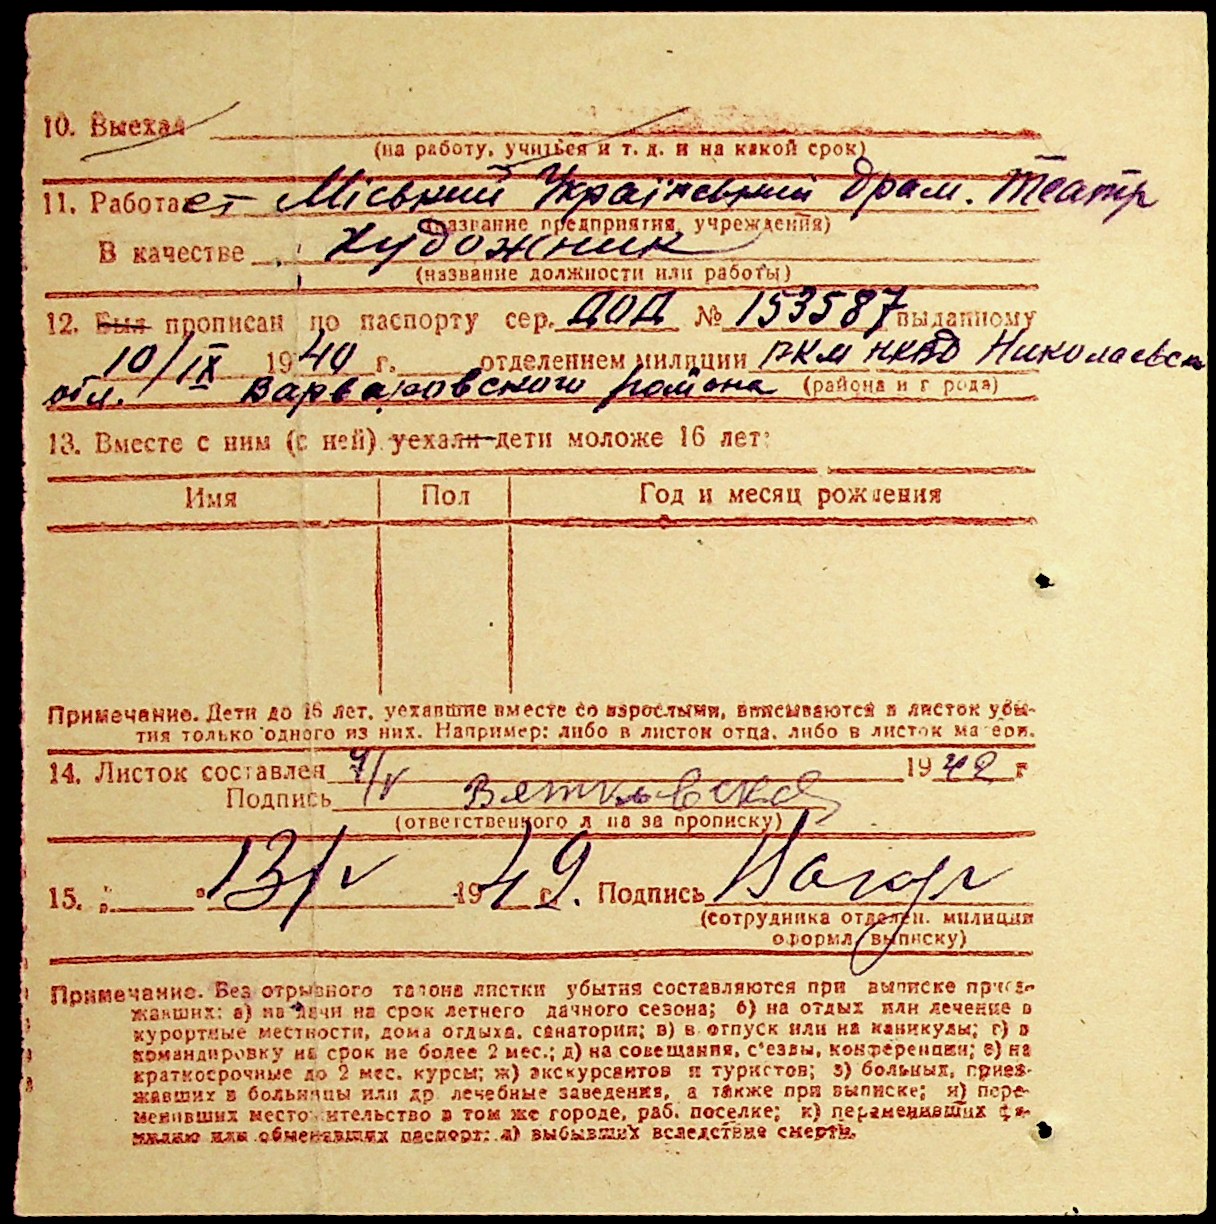 10. Выехал
(на работу, учиться и т. д. и на какой срок)
11. Работает Міський Український Драм. Театр
(название предприятия, учреждения)
В качестве художник
(название должности или работы)
12. Был прописан по паспорту сер. ДОД № 153587 выданному
10/IX 1940 г. отделением милиции РКМ НКВД Николаевск
обл. Варваровского района (района и города)
13. Вместе с ним (с ней) уехали дети моложе 16 лет:
Имя Пол Год и месяц рождения
Примечание. Дети до 16 лет, уехавшие вместе со взрослыми, вписываются в листок убы-
тия только одного из них. Например: либо в листок отца, либо в листок матери.
14. Листок составлен 9/V 1942 г
Подпись Вятковская
(ответственного лица за прописку)
15. " " 13/V 1942 г. Подпись
(сотрудника отделен. милиции
оформл. выписку)
Примечание. Без отрывного талона листки убытия составляются при выписке приез-
жавших: а) на дачи на срок летнего дачного сезона; б) на отдых или лечение в
курортные местности, дома отдыха, санатории; в) в отпуск или на каникулы; г) в
командировку на срок не более 2 мес.; д) на совещания, с'езды, конференции; е) на
краткосрочные до 2 мес. курсы; ж) экскурсантов и туристов; з) больных, приез-
жавших в больницы или др. лечебные заведения, а также при выписке; и) пере-
менивших местожительство в том же городе, раб. поселке; к) переменивших фа-
милию или обменявших паспорт; л) выбывших вследствие смерти.